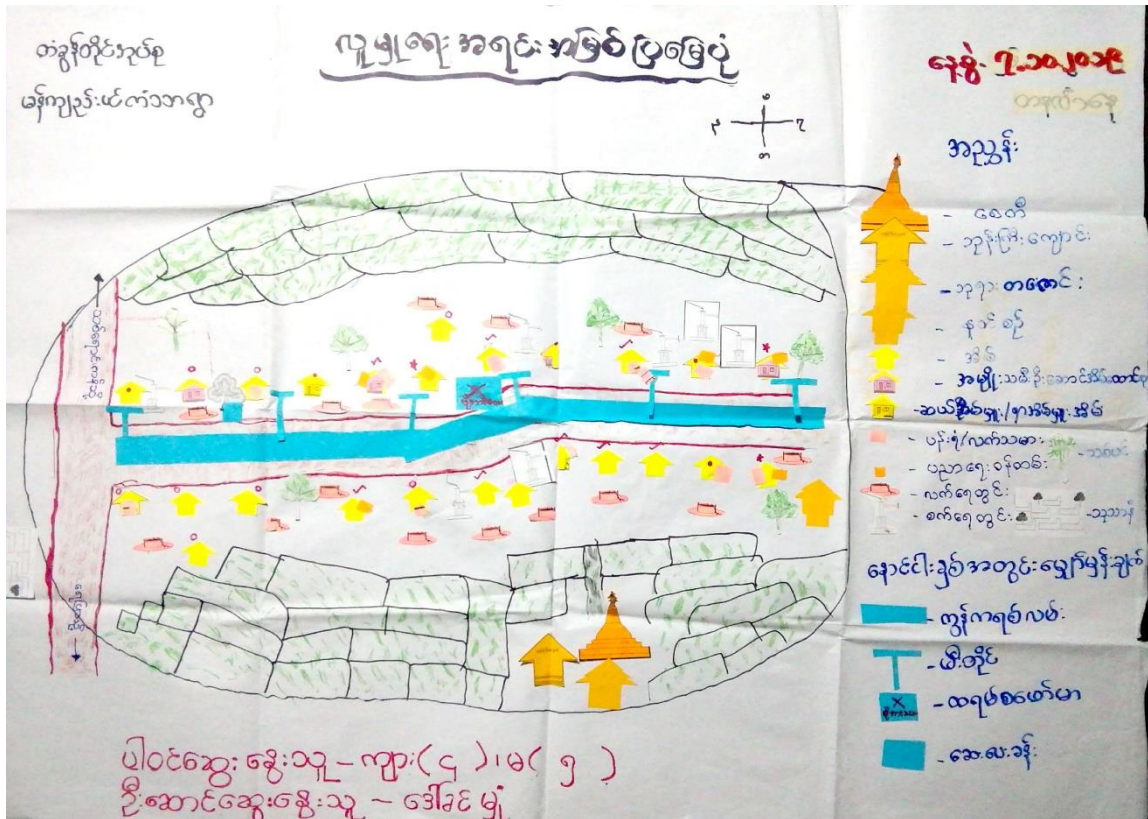 လူမှုရေးအရင်းအမြစ်ပြမြေပုံ
တံခွန်တိုင်အုပ်စု
မန်ကျည်းယင်ကံသာရွာ
နေ့စွဲ. ၇.၁၀.၂၀၁၉
တနင်္လာနေ့
အညွှန်း
- စေတီ
- ဘုန်းကြီးကျောင်း
- ဘုရားတဇောင်း
- နှာင်စဉ်
- အိမ်
- အမျိုးသမီးဦးဆောင်အိမ်ထောင်စု
- ဆယ်အိမ်မှူး/ရာအိမ်မှူးအိမ်
- ပန်းရံ/လက်သမား
- သစ်ပင်
- ပညာရေးဝန်ထမ်း
- လက်ရေတွင်း
- စက်ရေတွင်း
- သုသာန်
နောင်ငါးနှစ်အတွင်းမျှော်မှန်းချက်
- ကွန်ကရစ်လမ်း
- မီးတိုင်
- ထရမ်စဖော်မာ
- ဆေးပေးခန်း
ပါဝင်ဆွေးနွေးသူ – ကျား(၄)၊ မ(၅)
ဦးဆောင်ဆွေးနွေးသူ – ဒေါ်ခင်မျှံ